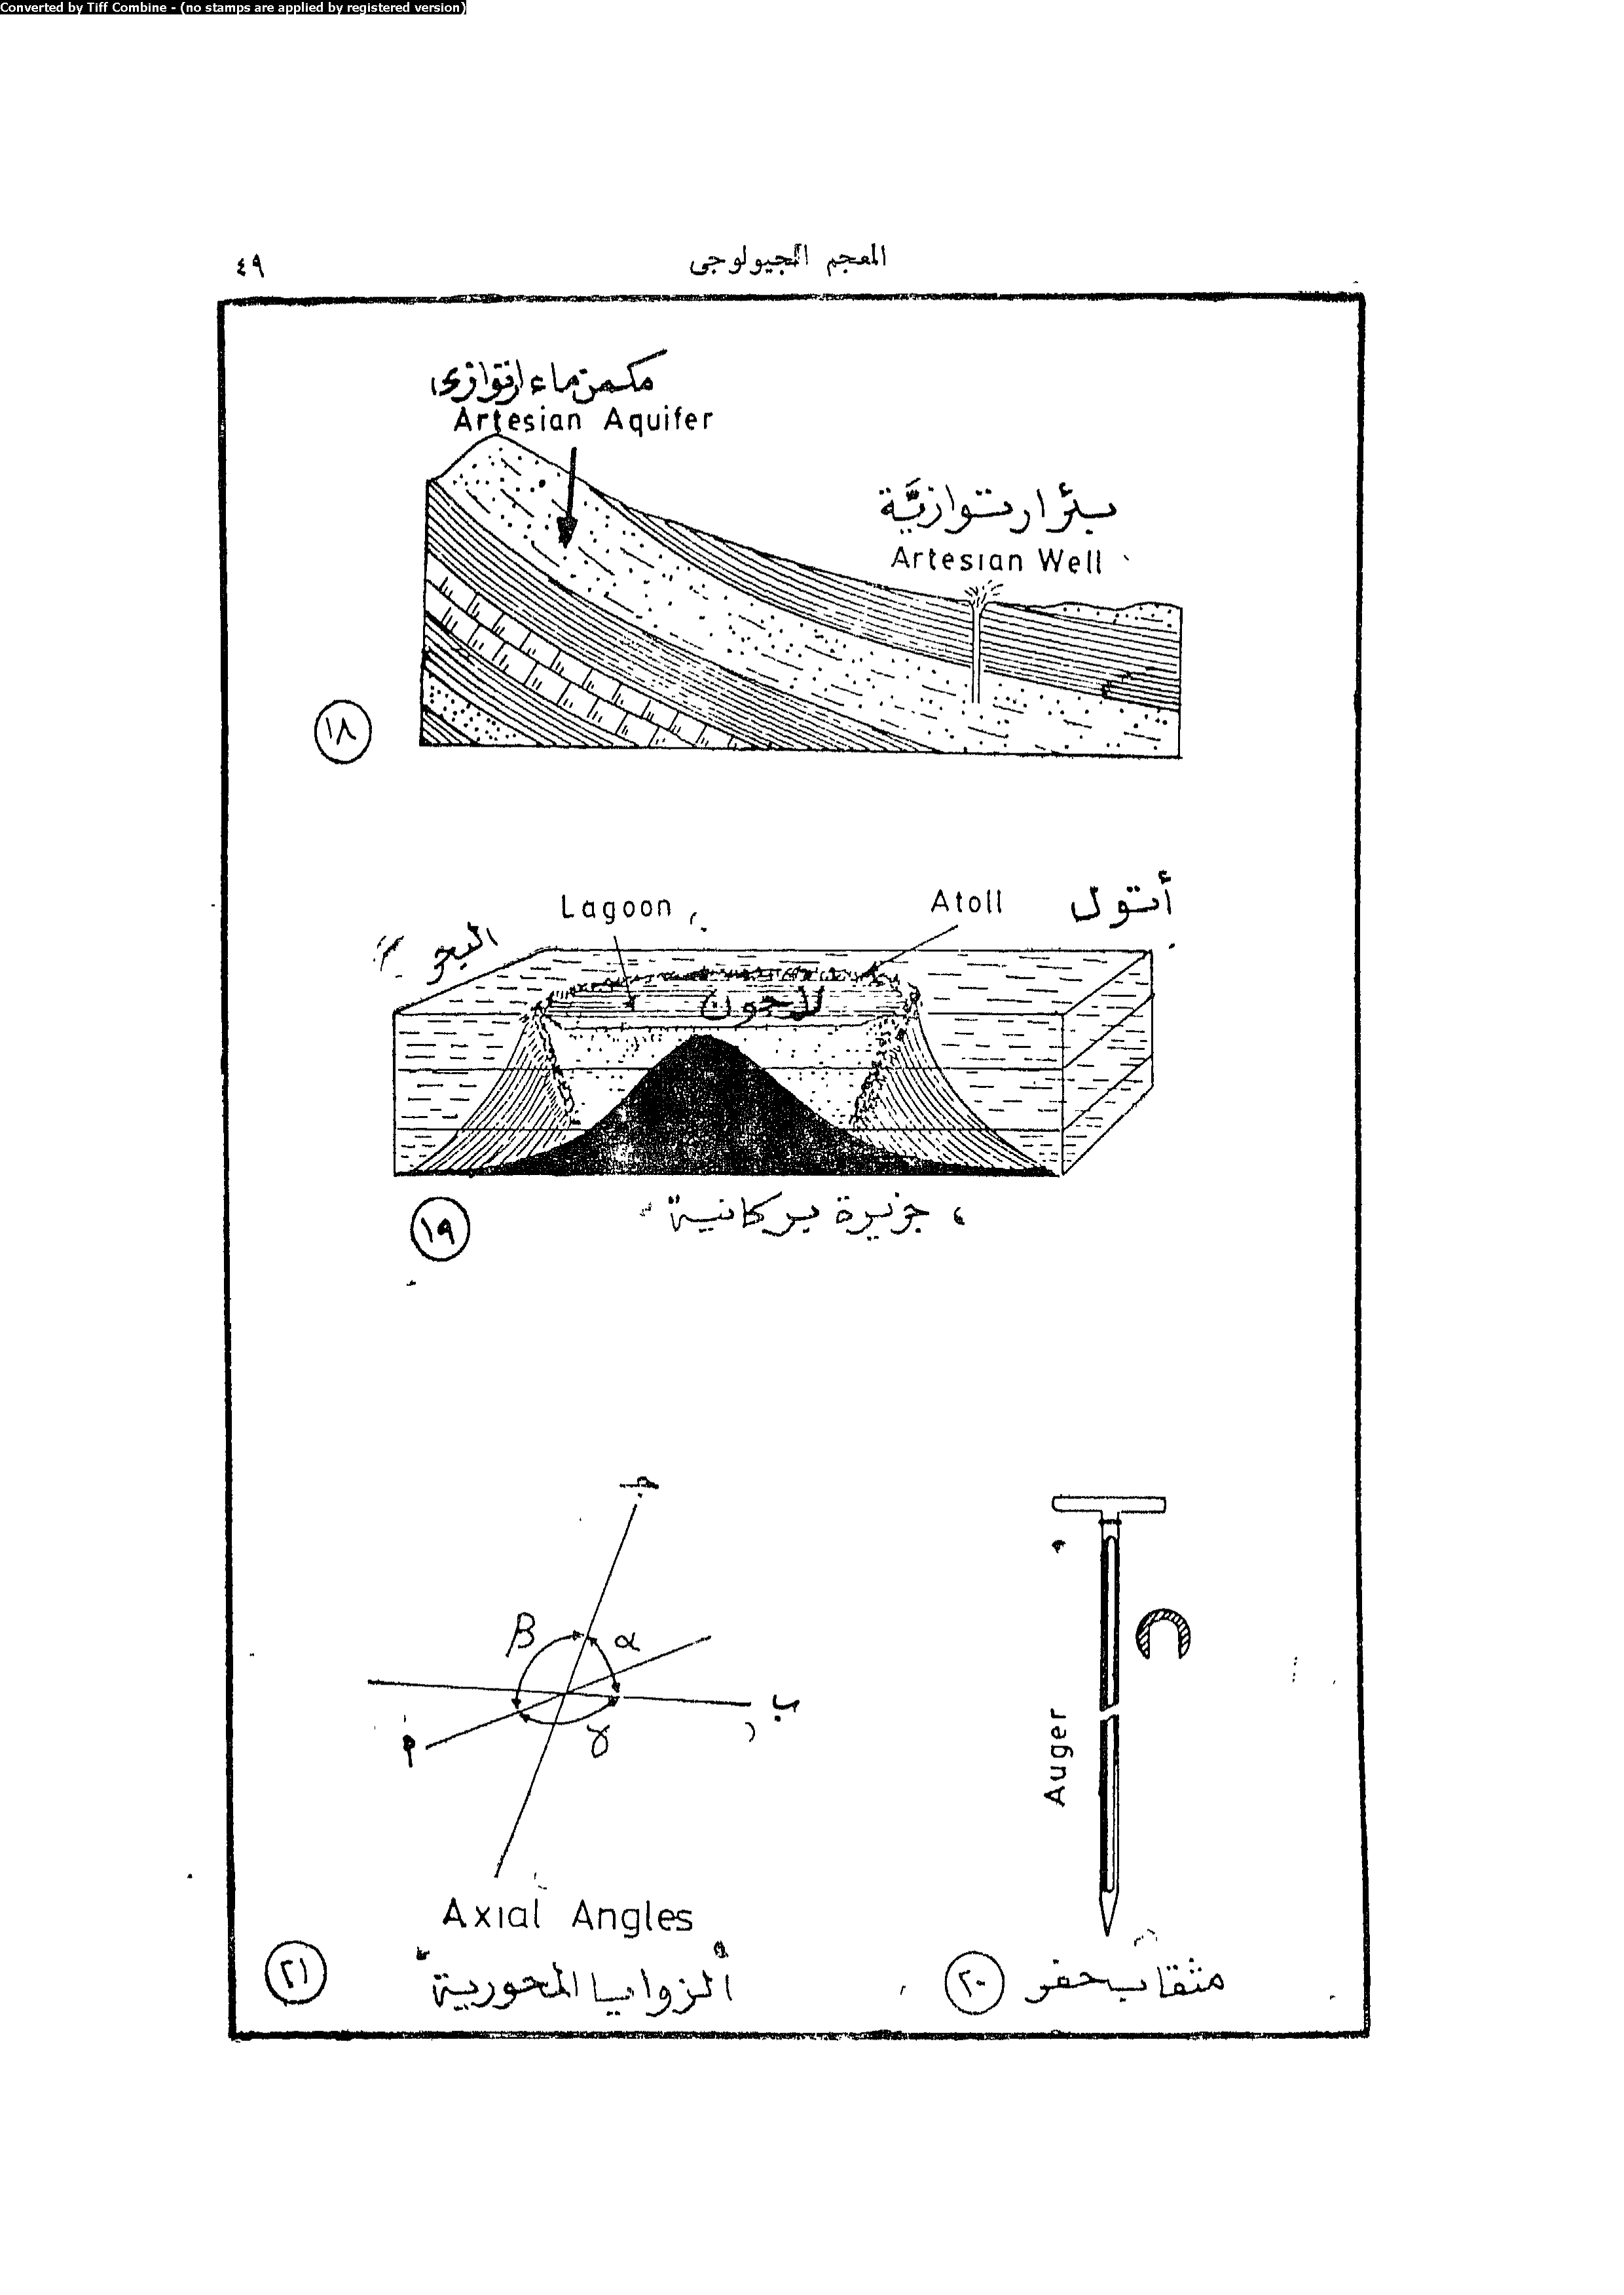 Converted by Tiff Combine - (no stamps are applied by registered version)
المعجم الجيولوجى
٤٩
مكمن ماء ارتوازى
Artesian Aquifer
بئر ارتوازيَّة
Artesian Well
١٨
أتول
Atoll
Lagoon
البحر
اللاجون
جزيرة بركانية
١٩
جـ
β
α
ب
γ
أ
Auger
Axial Angles
الزوايا المحورية
٢١
مثقاب حفر
٢٠